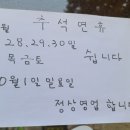 추석연휴
월
28.29.30일 쉽니다
목금토
0월1일 일요일
정상영업 합니다